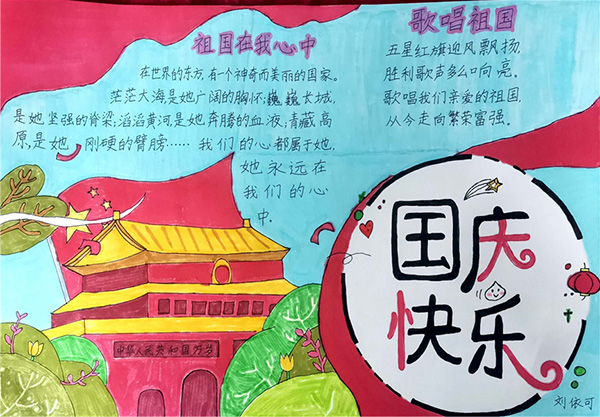 祖国在我心中
在世界的东方,有一个神奇而美丽的国家。
茫茫大海是她广阔的胸怀;巍巍长城,
是她坚强的脊梁;滔滔黄河是她奔腾的血液;青藏高
原,是她刚硬的臂膀……我们的心都属于她,
她永远在
我们的心
中.
歌唱祖国
五星红旗迎风飘扬,
胜利歌声多么响亮。
歌唱我们亲爱的祖国,
从今走向繁荣富强。
国庆
快乐
中华人民共和国万岁
刘依可